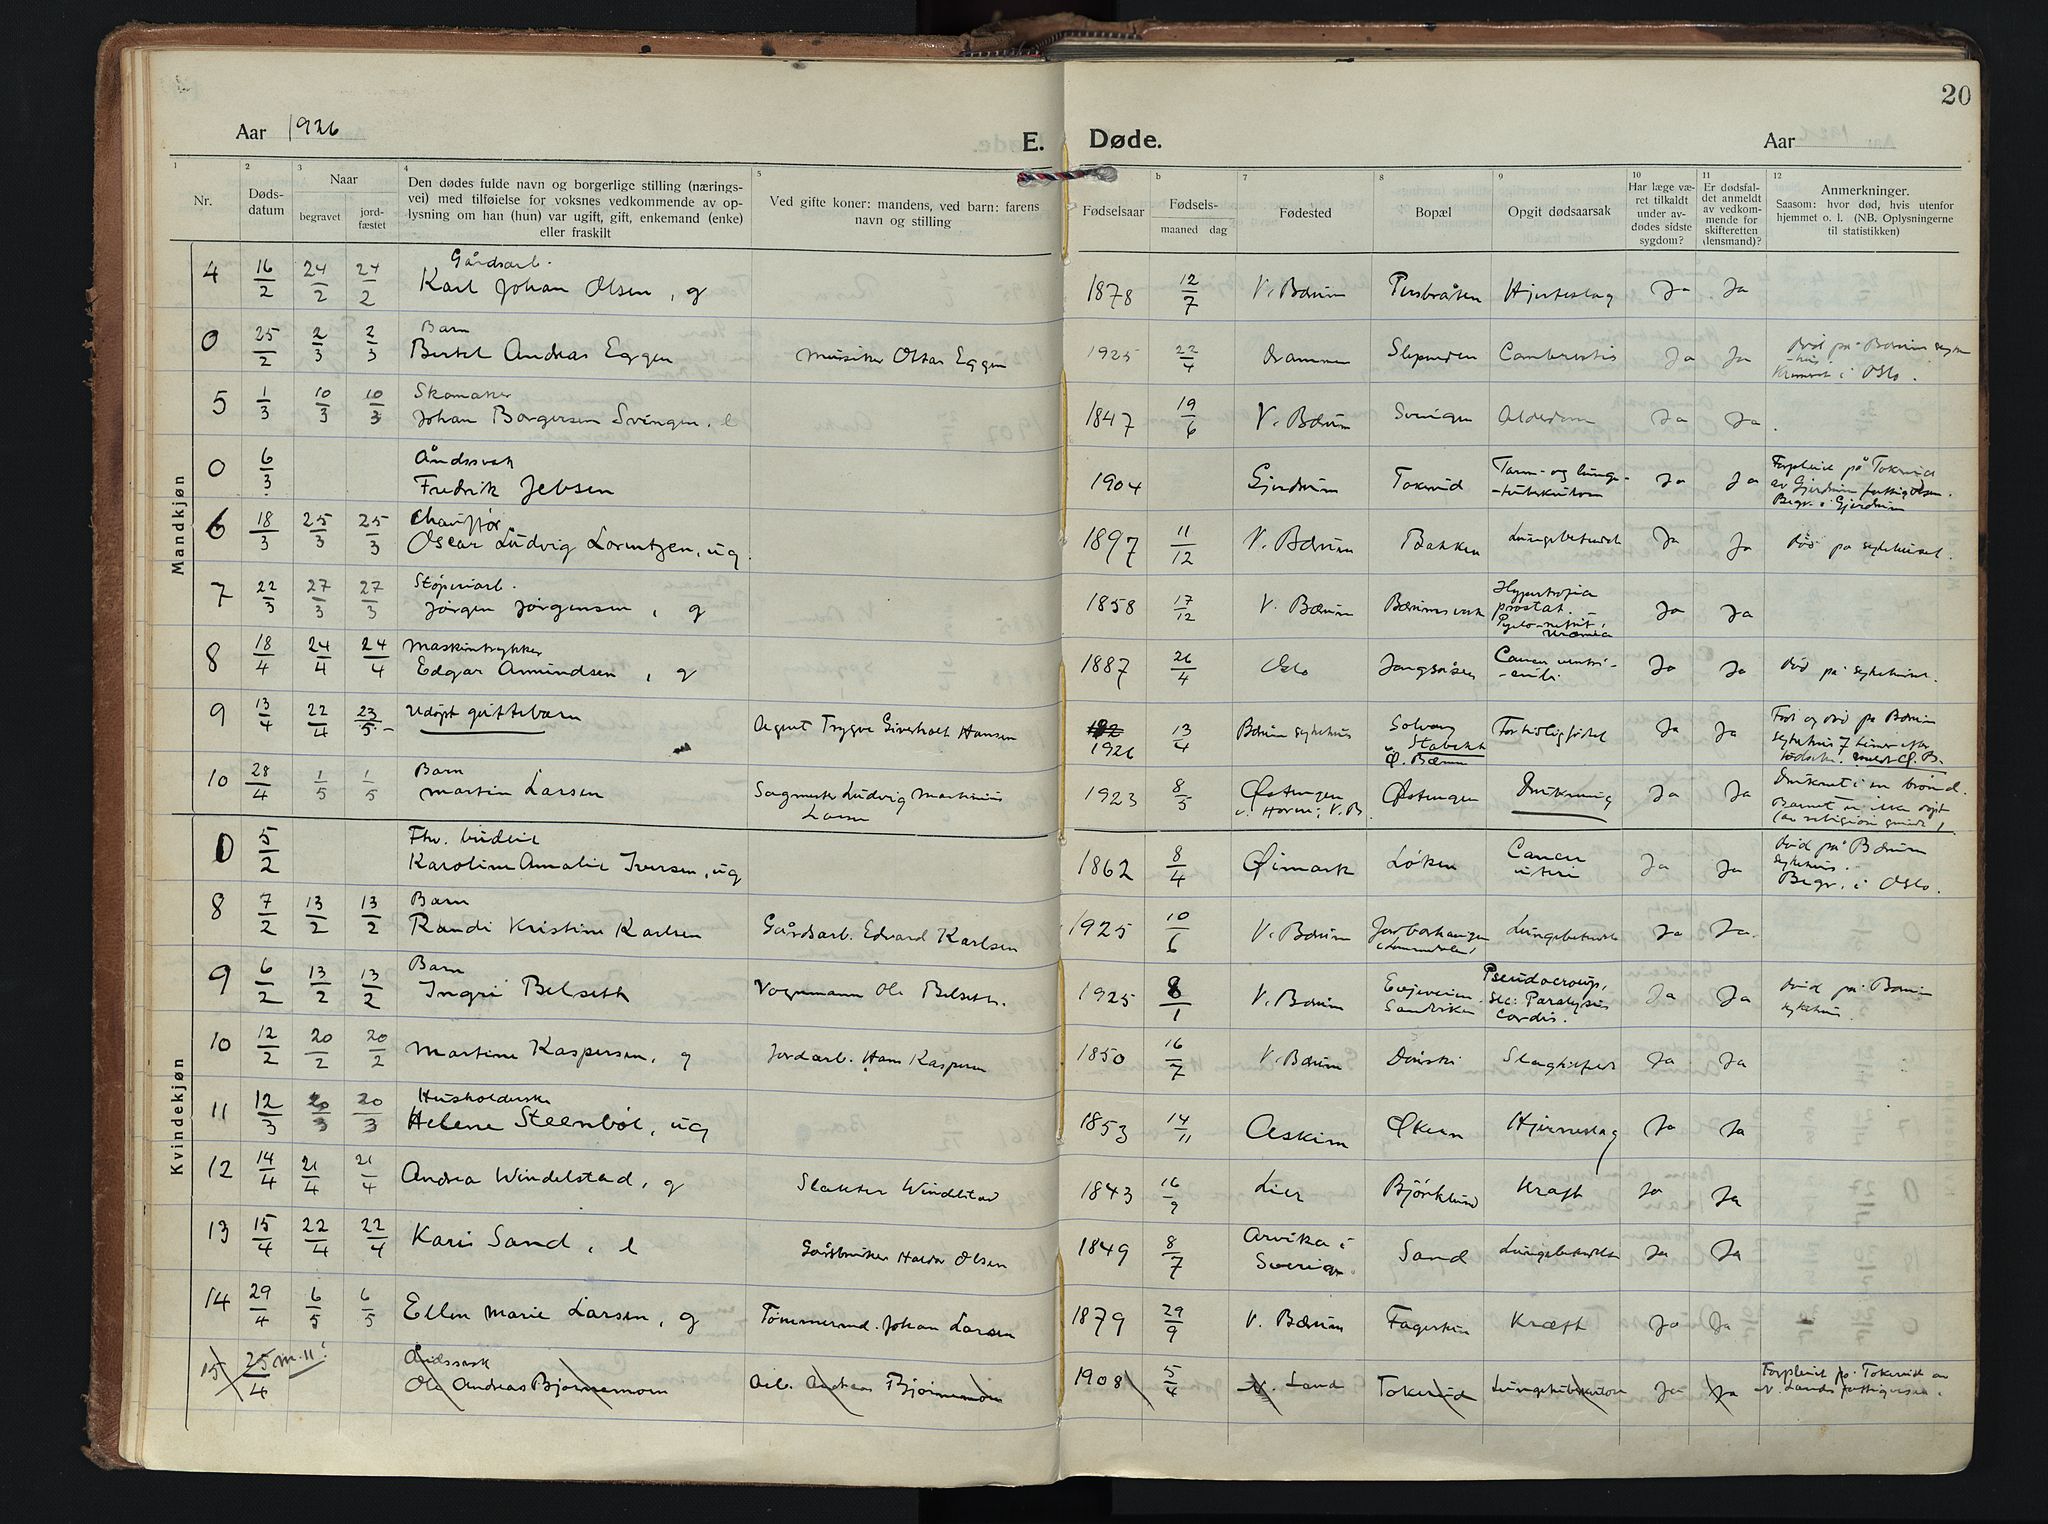 20
Aar 1926 E. Døde. Aar
1 2 3 4 5 6 7 8 9 10 11 12
Nr. Døds-datum Naar begravet jord-fæstet
Den dødes fulde navn og borgerlige stilling (nærings-
vei) med tilføielse for voksnes vedkommende av op-
lysning om han (hun) var ugift, gift, enkemand (enke)
eller fraskilt
Ved gifte koner: mandens, ved barn: farens
navn og stilling
Fødselsaar b Fødsels- maaned dag Fødested Bopæl Opgit dødsaarsak
Har læge væ-
ret tilkaldt
under av-
dødes sidste
sygdom?
Er dødsfal-
det anmeldt
av vedkom-
mende for
skifteretten
(lensmand)?
Anmerkninger.
Saasom: hvor død, hvis utenfor
hjemmet o. l. (NB. Oplysningerne
til statistikken)
Mandkjøn
Gårdsarb.
4 16/2 24/2 24/2 Karl Johan Olsen, g 1878 12/7 V. Bærum Hjerteslag Ja Ja
Barn
0 25/2 2/3 2/3 Bertel Andreas Eggen Musiker Eggen 1925 22/4 Drammen Slependen Ja Ja død på Bærum syke-
-hus. i Oslo.
Skomaker
5 1/3 10/3 10/3 Johan Borgersen Svingen, e 1847 19/6 V. Bærum Svingen Alderdom Ja Ja
Åndssvak
0 6/3 Fredrik Jebsen 1904 Gjerdrum Tokerud Tarm- og lunge-
-tuberkulose Ja Ja Forpleiet på Tokerud
av Gjerdrum fattigvesen.
Begr. i Gjerdrum
Chauffør
6 18/3 25/3 25/3 Oscar Ludvig Lorentzen, ug. 1897 11/12 V. Bærum Bakken Lungebetændelse Ja Ja død på sykehuset.
Støperiarb.
7 22/3 27/3 27/3 Jørgen Jørgensen, g 1858 17/12 V. Bærum Bærumsverk Hypertrofia
prostat.
Pyelo-nefrit,
Uræmia Ja Ja
Maskintrykker
8 18/4 24/4 24/4 Edgar Amundsen, g 1887 26/4 Oslo Jongsåsen Cancer ventri-
-culi Ja Ja død på sykehuset.
9 13/4 22/4 23/5 Udøpt guttebarn Agent Trygve Hansen 1926 13/4 Bærum sykehus Solvang
v. Stabekk
Ø. Bærum For tidlig født Ja Ja Født og død på Bærum
sykehus 7 timer efter
fødselen. Ø. B.
Barn
10 28/4 1/5 1/5 Martin Larsen Sagmester Ludvig Martinius
Larsen 1923 8/5 Østengen
V. B. Østengen Drukning Ja Ja Druknet i en brønd.
Barnet er ikke døpt
(av religiøse grunde)
Kvindekjøn
Fhv. budeie
0 5/2 Karoline Amalie Iversen, ug 1862 8/4 Øimark Løken Cancer
uteri Ja Ja død på Bærum
sykehus.
Begr. i Oslo.
Barn
8 7/2 13/2 13/2 Randi Kristine Karlsen Gårdsarb. Edvard Karlsen 1925 10/6 V. Bærum Lungebetændelse Ja Ja.
Barn
9 6/2 13/2 13/2 Ingri Belseth Vognmann Ole Belseth. 1925 8/1 V. Bærum Sandviken Pseudocroup,
Sec: Paralysis
Cordis. Ja Ja død på Bærum
sykehus.
10 12/2 20/2 20/2 Martine Kaspersen, g Jordarb. Hans Kaspersen 1850 16/7 V. Bærum Dønski Slagtilfelde Ja Ja
Husholderske
11 12/3 20/3 20/3 Helene Steenbøl, ug 1853 14/11 Askim Økern Hjerneslag Ja Ja
12 14/4 21/4 21/4 Andrea Windelstad, g Slakter Windelstad 1843 16/9 Lier Bjørklund Kræft Ja Ja
13 15/4 22/4 22/4 Kari Sand, e Gårdbruker Halvor Olsen 1849 8/7 Arvika i
Sverige. Sand Lungebetændelse Ja Ja
14 29/4 6/5 6/5 Ellen Marie Larsen, g Tømmermd. Johan Larsen 1879 29/9 V. Bærum Kræft Ja Ja
Åndssvak
15 25/4 m. 11! Ole Andreas Bjørnemoen Arb. Andreas Bjørnemoen 1908 5/4 N. Land Tokerud Lungetuberkulose Ja Ja Forpleiet på Tokerud av
N. Lands fattigvesen.